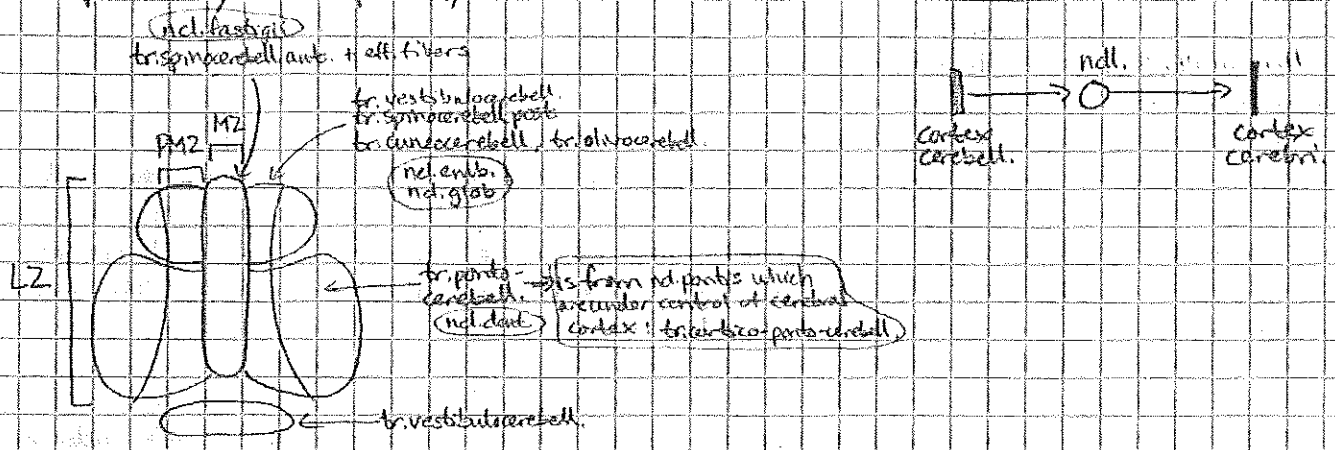 ncl.fastigii
tr.spinocerebell.ant. + eff. fibers
tr.vestibulocerebell.
tr.spinocerebell.post
tr.cuneocerebell, tr.olivocerebell.
ncl.emb.
ncl.glob
MZ
PMZ
LZ
tr.ponto-
cerebell.
ncl.dent
is from ncl.pontis which
are under control of cerebral
cortex : tr.cortico-ponto-cerebell
tr.vestibulocerebell.
ndl.
cortex
cerebell.
cortex
cerebri.